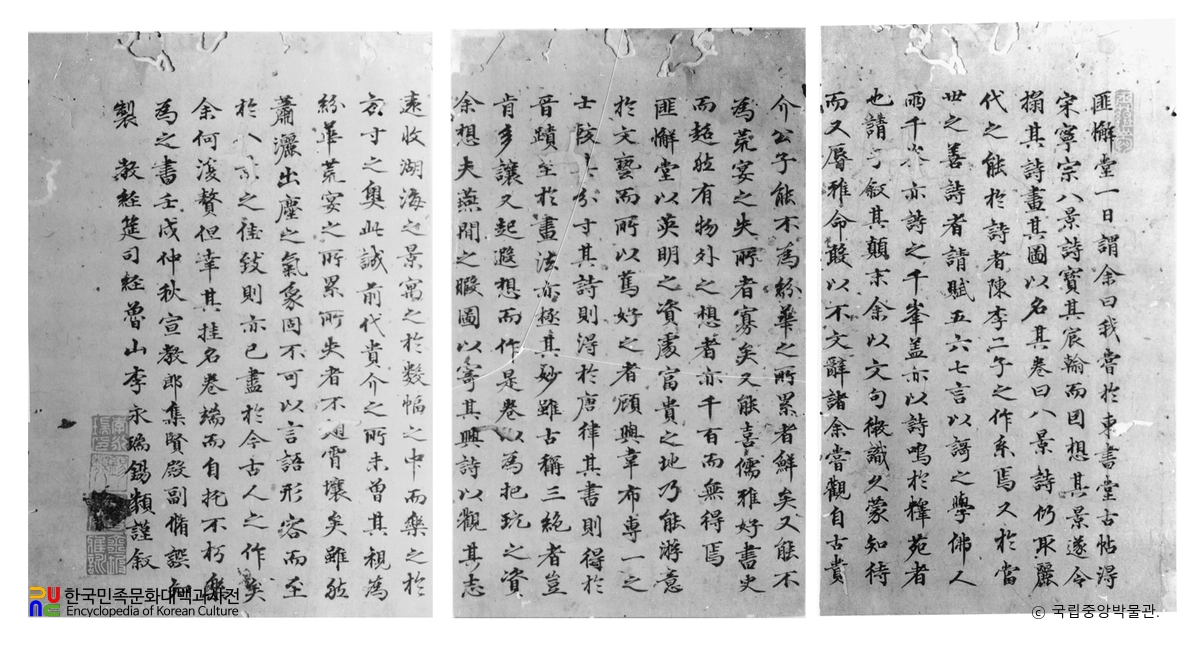 匪懈堂一日謂余曰我嘗於東書堂古帖得
宋寧宗八景詩寶其宸翰而因想其景遂令
搨其詩畫其圖以名其卷曰八景詩仍取麗
代之能於詩者陳李二子之作系焉又於當
世之善詩者請賦五六七言以謌之學佛人
雨千峯亦詩之千峯盖亦以詩鳴於釋苑者
也請予叙其顛末余以文句微識久蒙知待
而又辱雅命敢以不文辭諸余嘗觀自古貴
介公子能不為紛華之所累者鮮矣又能不
為荒宴之失所者寡矣又能喜儒雅好書史
而超然有物外之想者亦千百而無得焉
匪懈堂以英明之資處富貴之地乃能游意
於文藝而所以篤好之者頋與韋布專一之
士較其分寸其詩則得於唐律其書則得於
晋蹟至於畫法亦極其妙雖古稱三絶者豈
肯多讓又起遐想而作是卷以為把玩之資
余想夫燕閒之暇圖以寄其興詩以觀其志
遠收湖海之景寓之於数幅之中而樂之於
方寸之奥此誠前代貴介之所未曾其視為
紛華荒宴之所累所失者不翅霄壤矣雖然
蕭灑出塵之氣象固不可以言語形容而至
於八景之佳致則亦已盡於今古人之作矣
余何復贅但幸其挂名卷端而自托不朽樂
為之書壬戌仲秋宣教郎集賢殿副脩撰知
製 教經筵司經魯山李永瑞錫類謹叙
한국민족문화대백과사전
Encyclopedia of Korean Culture
ⓒ 국립중앙박물관.